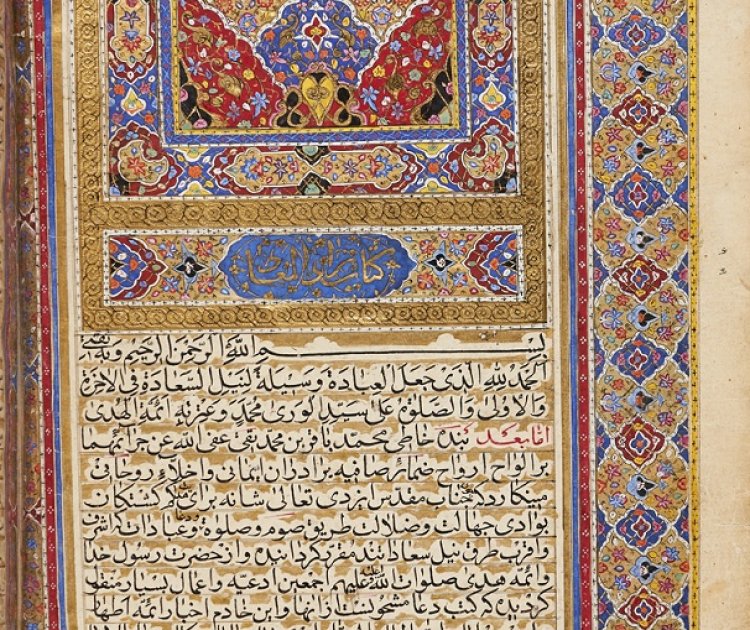 کتاب
بسم الله الرحمن الرحیم وبه ثقتی
الحمد لله الذی جعل العبادة وسیلة لنیل السعادة فی الاخرة
والاولی والصلوة علی سید الوری محمد وعترته ائمة الهدی
اما بعد بنده خاطی محمد باقر بن محمد تقی عفی الله عن جرائمهما
بر الواح ارواح ضمائر صافیه برادران ایمانی واخلاء روحانی
مینکارد که جناب مقدس ایزدی تعالی شانه برای سرکشتکان
بوادی جهالت وضلالت طریق صوم وصلوة وعبادات که اشرف
واقرب طرق نیل سعاداتند مقرر کردانیده واز حضرت رسول خدا
وائمه هدی صلوات الله علیهم اجمعین ادعیه واعمال بسیار منقول
کردیده که کتب دعا مشحونست از انها واین خادم اخبار ائمه اطهار